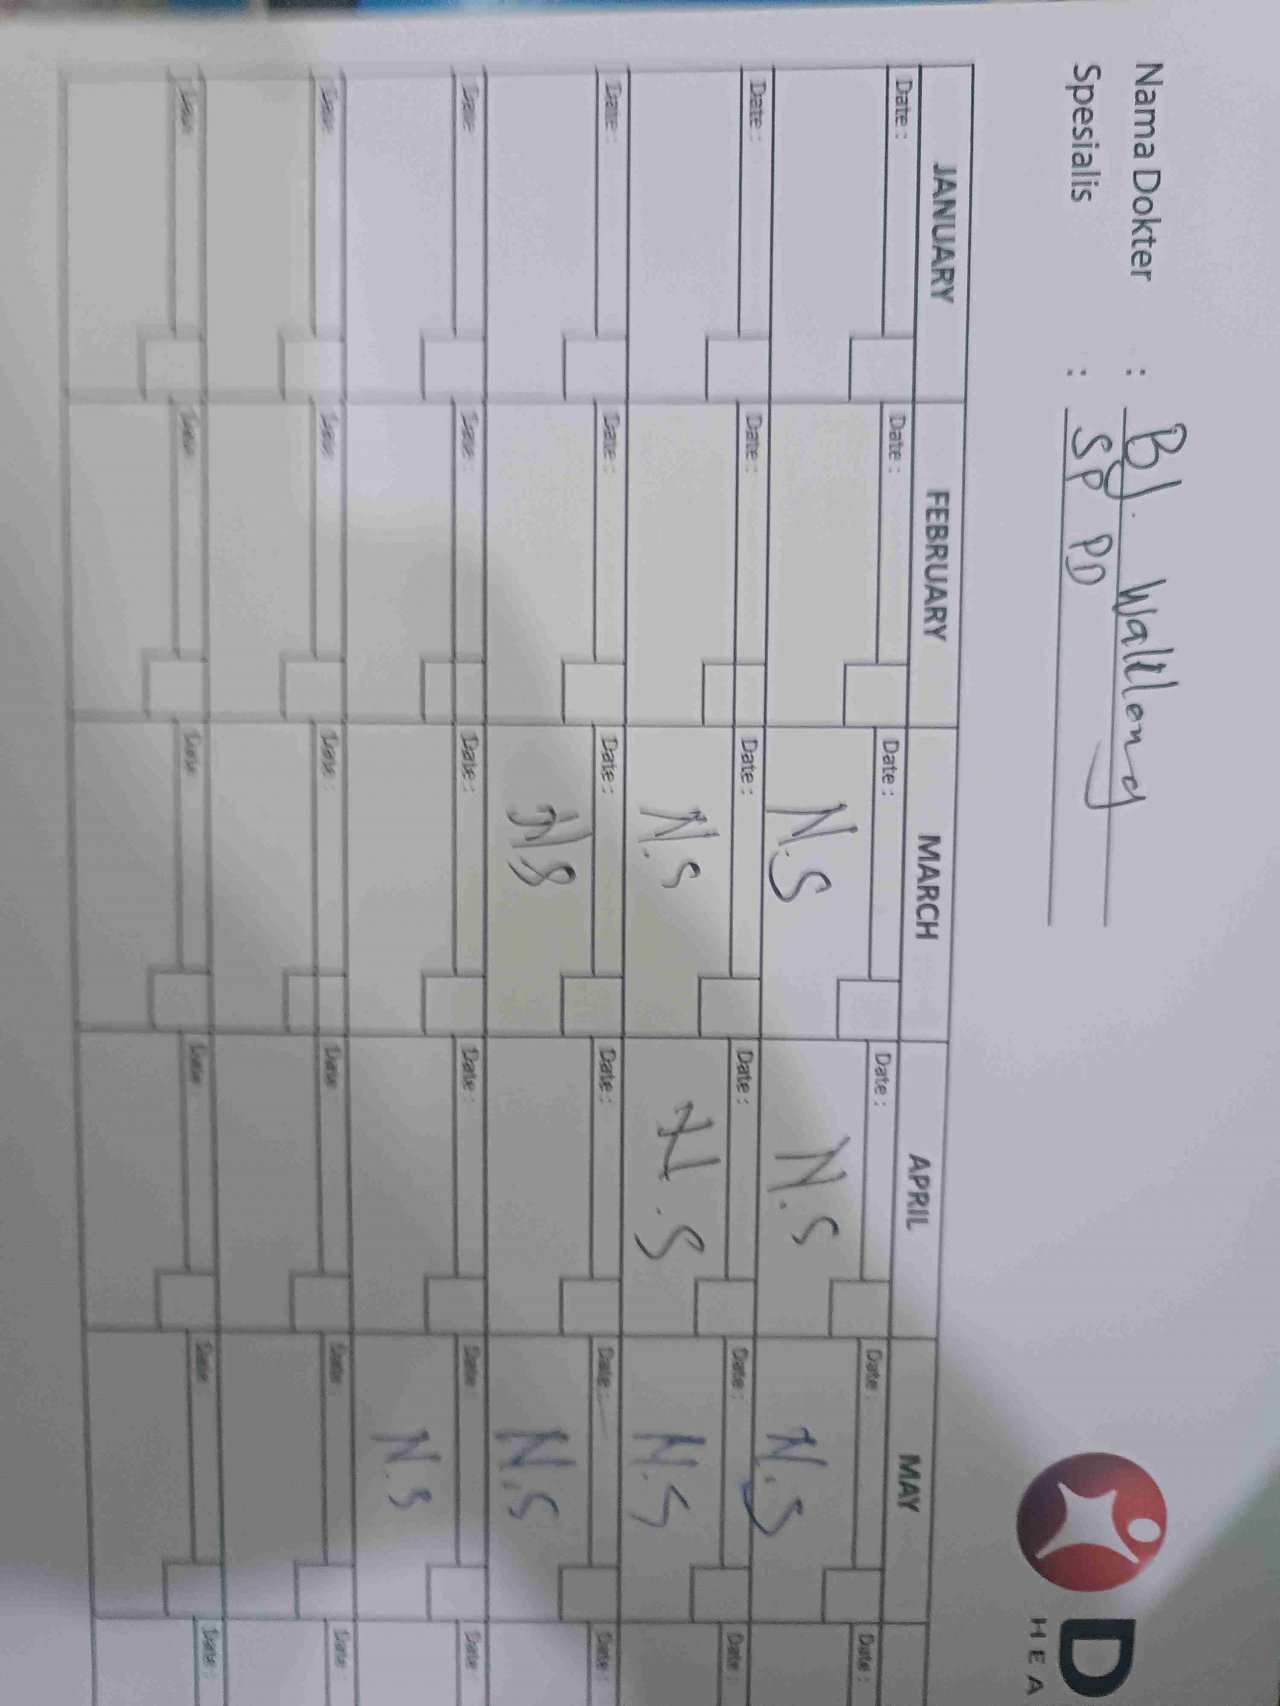 Nama Dokter : BJ. Waleleng
Spesialis : SP PD
D
HEA
JANUARY FEBRUARY MARCH APRIL MAY
Date : Date : Date : Date : Date : Date :
N.S N.S N.S
Date : Date : Date : Date : Date : Date :
N.S N.S N.S
Date : Date : Date : Date : Date : Date :
NS N.S
Date : Date : Date : Date : Date : Date :
N.S
Date : Date : Date : Date : Date : Date :
Date : Date : Date : Date : Date : Date :